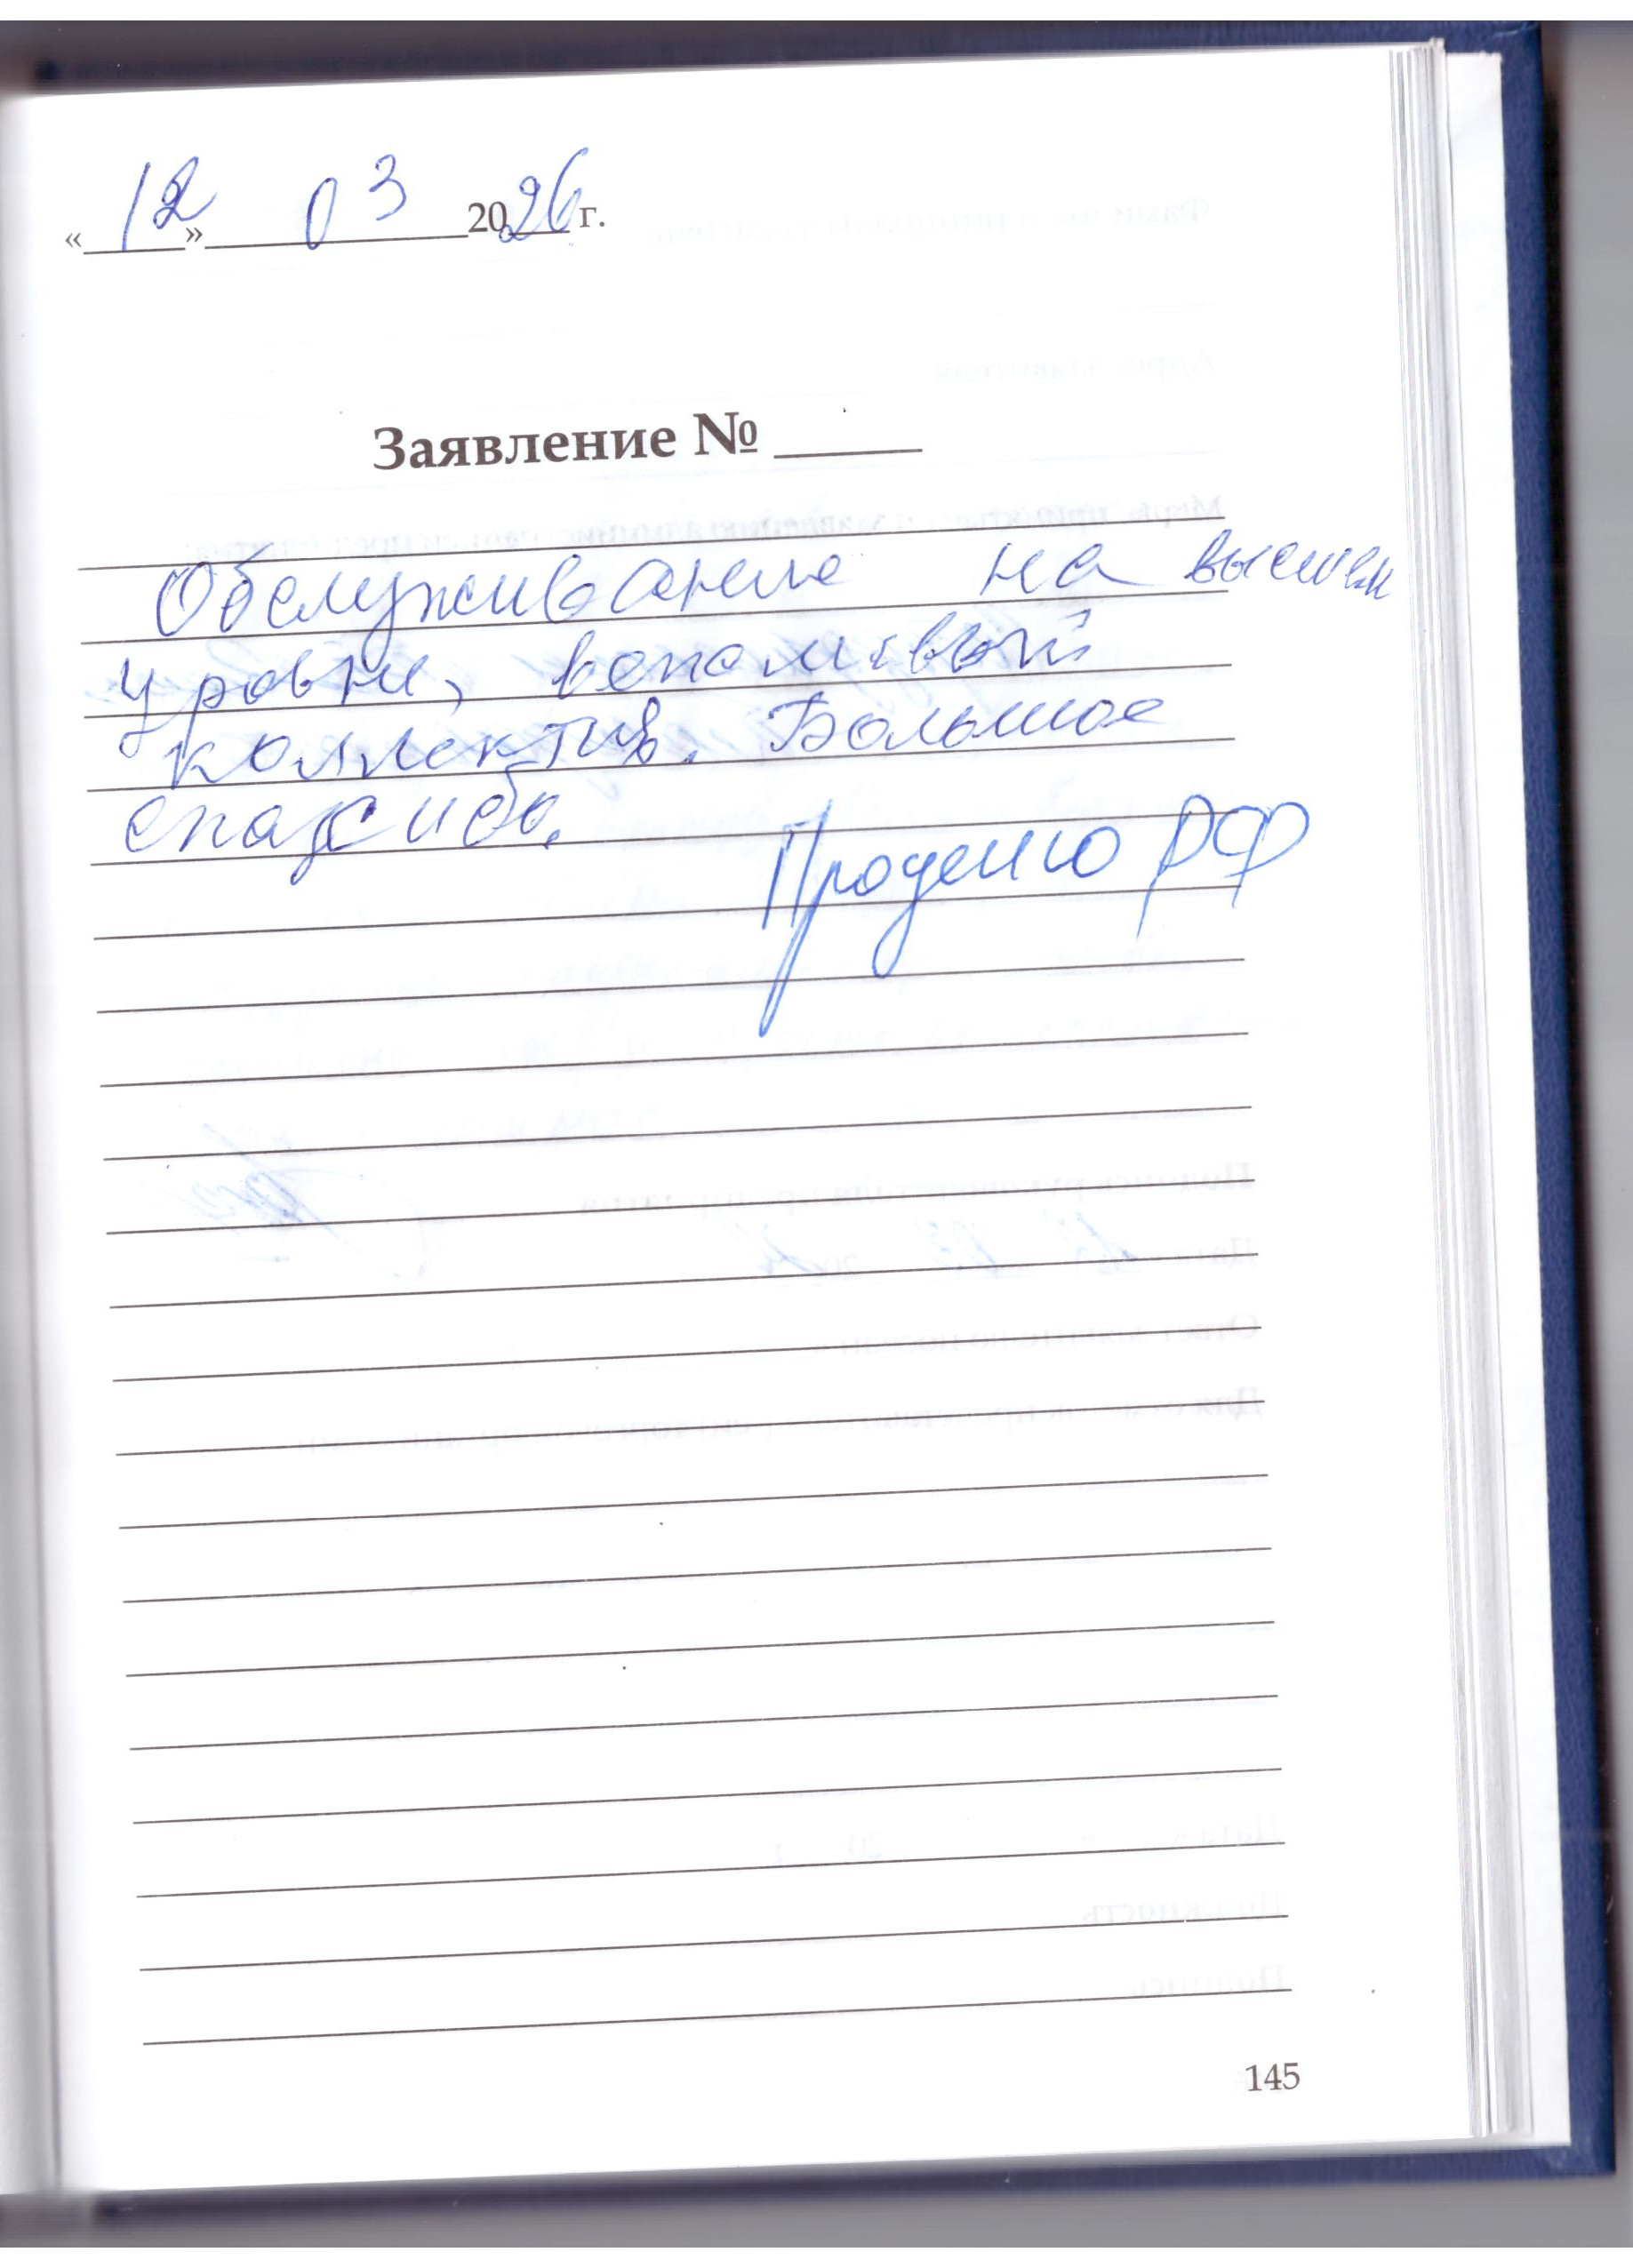 « 12 » 03 2026 г.
Заявление № ____
Обслуживание на высшем
уровне,
коллектив. Большое
спасибо.
РФ
145